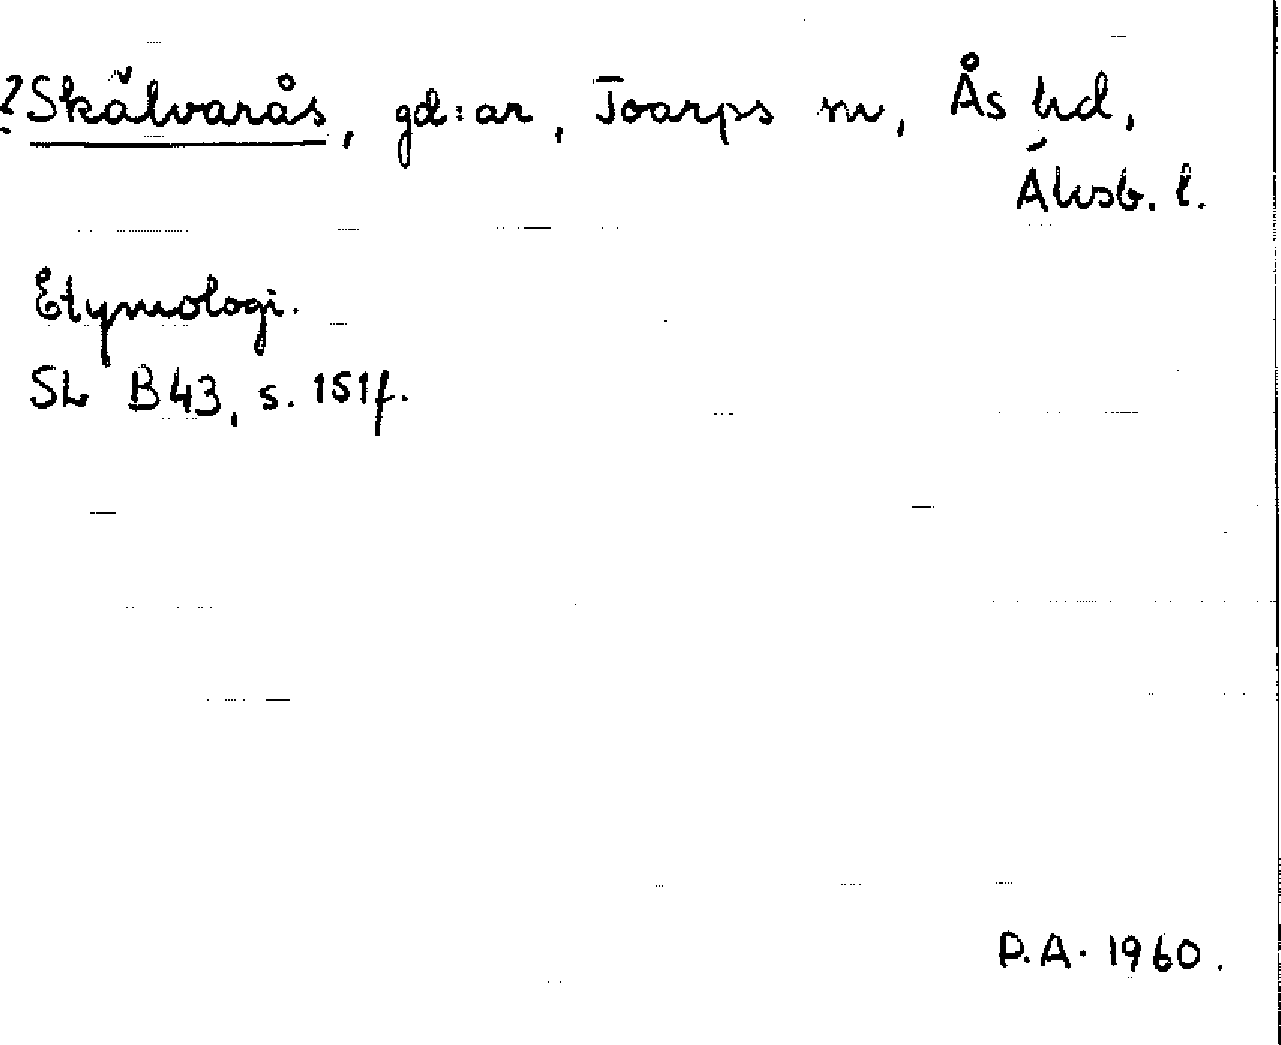 ? Skälvarås, gd:ar, Toarps sn, Ås hd,
Älvsb. l.
Etymologi.
SL B43, s. 151f.
P.A. 1960.